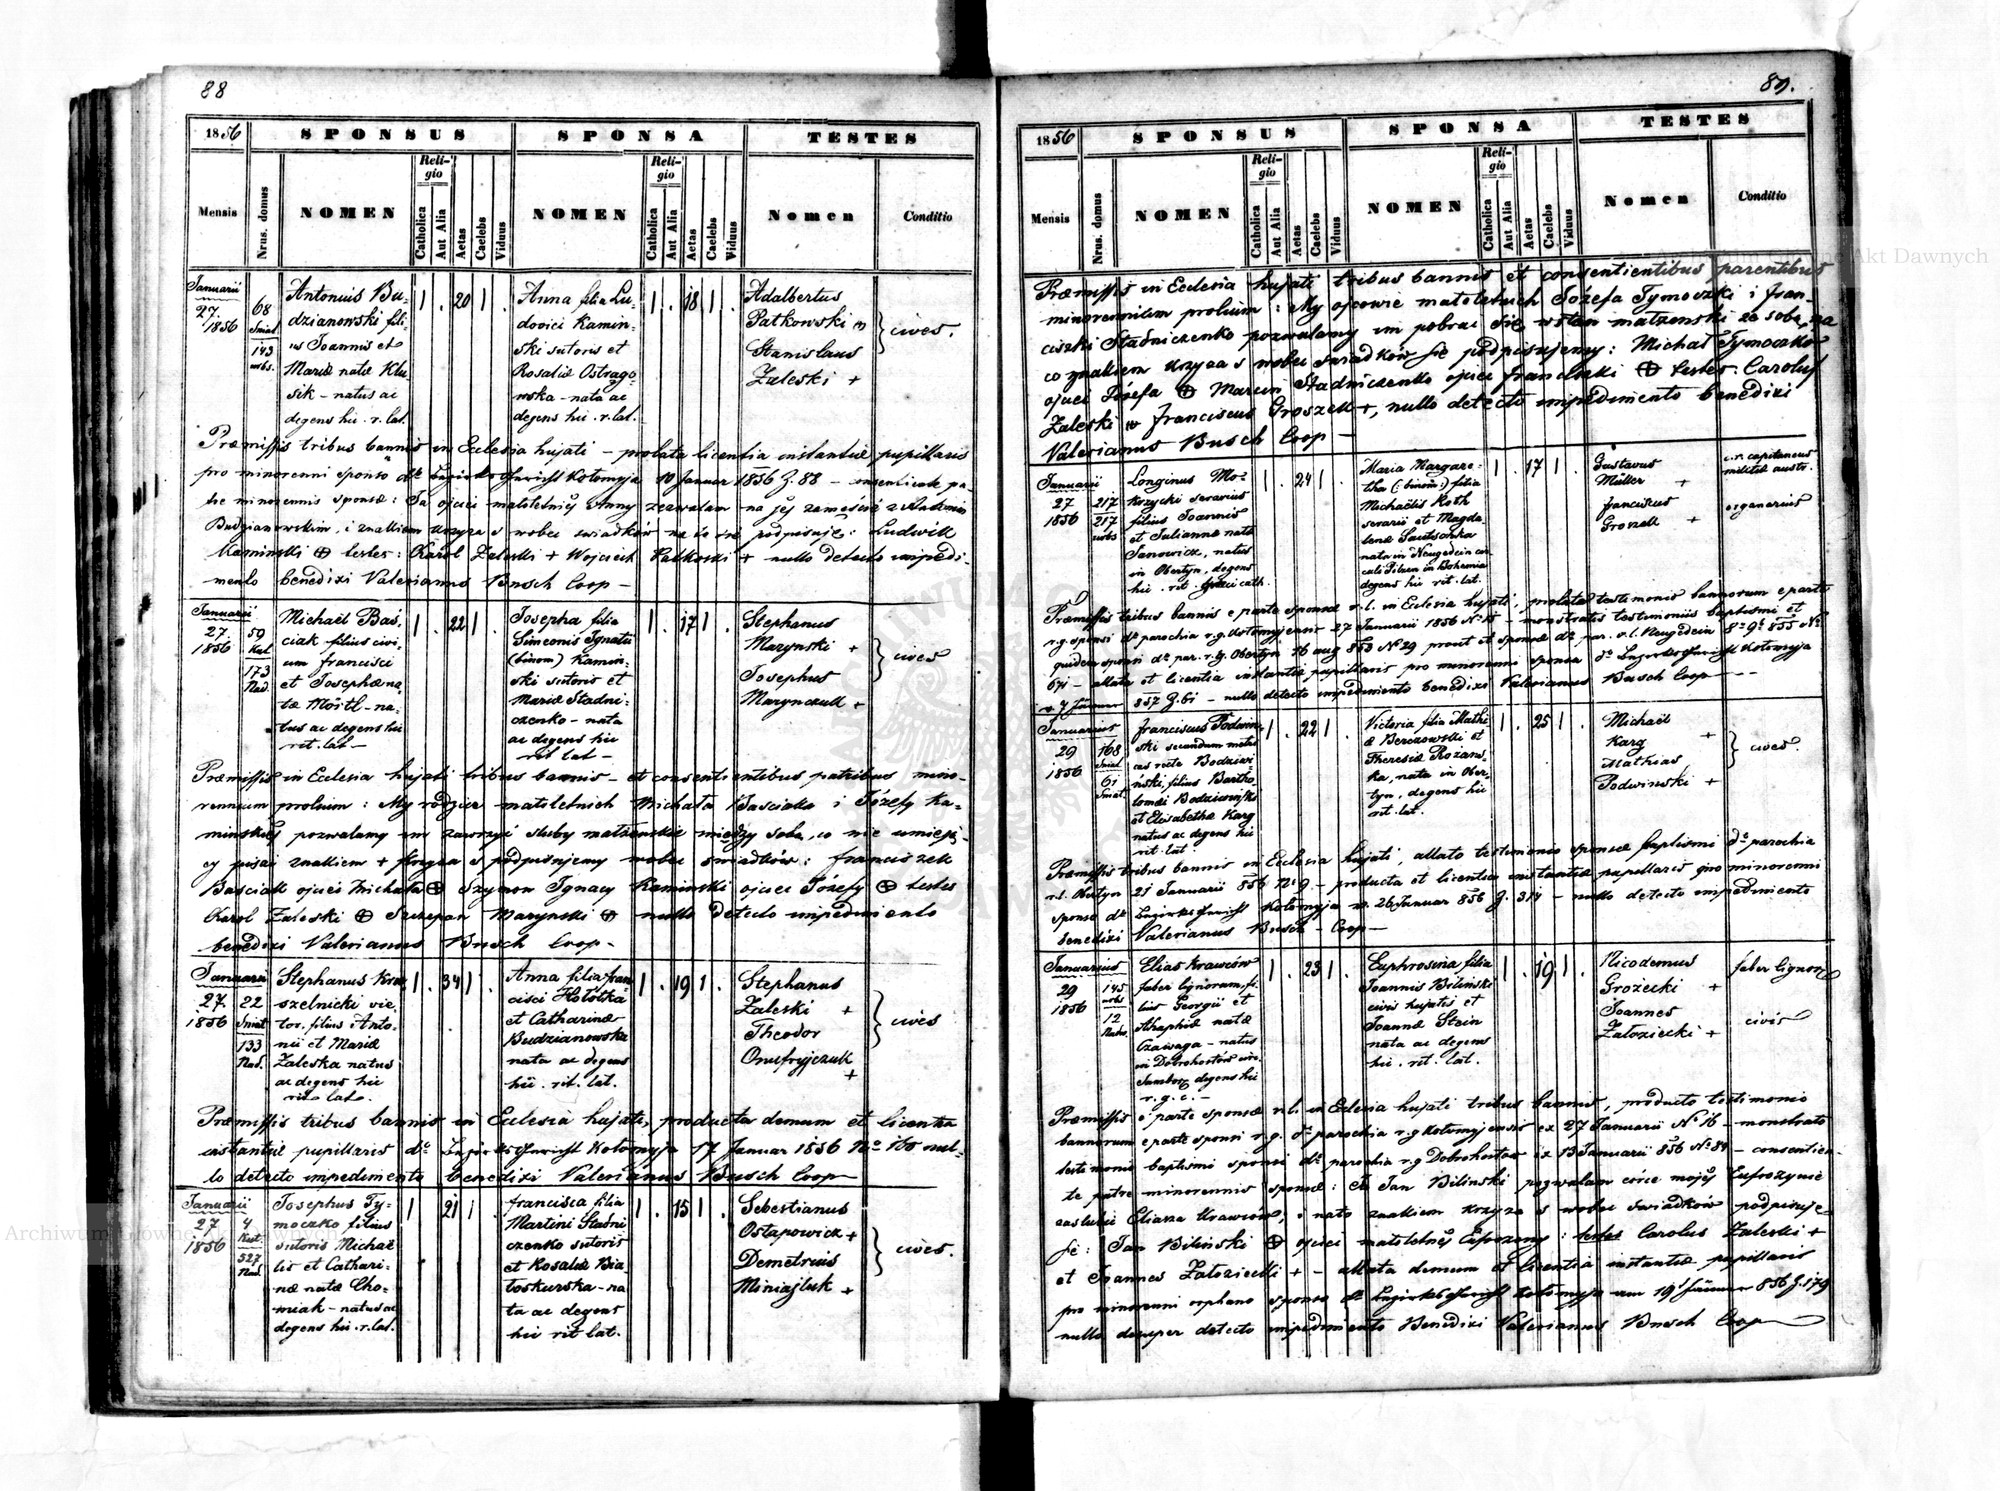 88
1856
SPONSUS
SPONSA
TESTES
Mensis
Nrus. domus
NOMEN
Religio
Catholica
Aut Alia
Aetas
Caelebs
Viduus
NOMEN
Religio
Catholica
Aut Alia
Aetas
Caelebs
Viduus
Nomen
Conditio
Januarii
27.
1856
68
Śniat.
143
urbs.
Antonius Bu-
dzianowski fili-
us Joannis et
Mariæ natæ Klu
sik - natus ac
degens hic . r. lat.
1 . 20 1 .
Anna filia Lu-
dovici Kamin-
ski sutoris et
Rosaliæ Ostrogo-
wska - nata ac
degens hic . r. lat.
1 . 18 1 .
Adalbertus
Patkowski
Stanislaus
Zaleski +
cives.
Præmissis tribus bannis in Ecclesia hujati - prolata licentia instantiæ pupillaris
pro minorenni sponso dto Bezirksgericht Kołomyja 10 Januar 1856 Z. 88 - consenticate pa-
tre minorennis sponsæ: Ja ojciec małoletniéj Anny zezwalam na jéj zamęście z Antonim
Budzianowskim, i znakiem krzyża s wobec świadków na to się podpisuję: Ludwik
Kaminski ⊕ testes: Karol Zaleski + Wojciech Patkoski + nullo detecto impedi-
mento benedixi Valerianus Busch Coop -
Januarii
27.
1856
59
Kut
173
Nad.
Michaël Baś-
ciak filius civi-
um francisci
et Josephæ na-
tæ Moitl - na-
tus ac degens hic
rit. lat -
1 . 22 1 .
Josepha filia
Simeonis Ignatii
(binom) Kamin-
ski sutoris et
Mariæ Stadni-
czenko - nata
ac degens hic
rit lat -
1 . 17 1 .
Stephanus
Marynski +
Josephus
Marynczuk +
cives
Præmissis in Ecclesia hujati tribus bannis - et consentientibus patribus mino-
rennium prolium : My rodzice małoletnich Michała Baściaka i Józefy Ka-
minskiéj pozwalamy im zawrzyć śluby małżenskie między sobą, co nie umieją-
cy pisać znakiem + krzyża s podpisujemy wobec świadków: franciszek
Baściak ojciec Michała ⊕ Szymon Ignacy Kaminski ojciec Józefy ⊕ testes
Karol Zaleski ⊕ Szczepan Marynski ⊕ nullo detecto impedimento
benedixi Valerianus Busch Coop -
Januarii
27.
1856
22
Śniat
133
Nad.
Stephanus Kra-
szelnicki vie-
tor. filius Anto-
nii et Mariæ
Zaleska natus
ac degens hic
rit. lat.
1 . 34 1 .
Anna filia fran-
cisci Hołotka
et Catharinæ
Budzianowska
nata ac degens
hic . rit. lat.
1 . 19 1 .
Stephanus
Zaleski +
Theodor
Onufryjczuk
+
cives
Præmissis tribus bannis in Ecclesia hujati, producta demum et licentia
instantiæ pupillaris dto Bezirksgericht Kołomyja 17 Januar 1856 No 160 nul-
lo detecto impedimento benedixi Valerianus Busch Coop
Januarii
27
1856
4
Kut.
527
Nad.
Josephus Ty-
moczko filius
sutoris Michaë
lis et Cathari-
næ natæ Cho-
miak - natus ac
degens hic . r. lat.
1 . 21 1 .
francisca filia
Martini Stadni
czenko sutoris
et Rosaliæ Bia-
łoskurska - na
ta ac degens
hic rit lat.
1 . 15 1 .
Sebestianus
Ostapowicz +
Demetrius
Miniajluk +
cives.
89.
1856
SPONSUS
SPONSA
TESTES
Mensis
Nrus. domus
NOMEN
Religio
Catholica
Aut Alia
Aetas
Caelebs
Viduus
NOMEN
Religio
Catholica
Aut Alia
Aetas
Caelebs
Viduus
Nomen
Conditio
Præmissis in Ecclesia hujati tribus bannis et consentientibus parentibus
minorennium prolium : My ojcowie małoletnich Józefa Tymoczki i fran-
ciszki Stadniczenko pozwalamy im pobrać się w stan małżenski ze sobą, na
co znakiem krzyża s wobec świadków się podpisujemy: Michał Tymoczko
ojciec Józefa ⊕ Marcin Stadniczenko ojciec franciszki ⊕ testes Carolus
Zaleski franciscus Groszek +, nullo detecto impedimento benedixi
Valerianus Busch Coop -
Januarii
27
1856
217
217
urbs
Longinus Mo-
krzycki serarius
filius Joannis
et Julianna natæ
Janowicz, natus
in Obertyn, degens
hic . rit. græci cath.
1 . 24 1 .
Maria Margare-
tha (: binom:) filia
Michaëlis Roth
serarii et Magda-
lenæ Sautschka
nata in Neugedein cir-
culi Pilzen in Bohemia
degens hic rit. lat.
1 . 17 1 .
Gustavus
Müller +
franciscus
Groszek +
c. r. capitaneus
militæ austr.
organarius
Præmissis tribus bannis e parte sponsæ r. l. in Ecclesia hujati, prolato testimonio bannorum e parte
r. g. sponsi dto parochia r. g. Kołomyjensis 27 Januarii 1856 No 15 - monstratis testimoniis baptismi et
quidem sponsi dto par. r. g. Obertyn 16 aug 855 No 29 prout et sponsæ dto par. r. l. Neugedein 8o 9b 855 No
671 - allata et licentia instantiæ pupillaris pro minorenni sponsa dto Bezirksgericht Kołomyja
v. 7 Jänner 857 Z. 61 - nullo detecto impedimento benedixi Valerianus Busch Coop -
Januarius
29
1856
168
Śniat.
61
Śniat.
franciscus Podwin-
ski secundum metri
cas recte Bodziwi-
ński, filius Bartho
lomæi Bodziwiński
et Elisabethæ Karg
natus ac degens hic
rit. lat.
1 . 22 1 .
Victoria filia Mathi
æ Berezowski et
Theresiæ Rożans-
ka, nata in Ober-
tyn, degens hic
rit. lat.
1 . 25 1 .
Michaël
Karg +
Mathias
Podwinski +
cives.
Præmissis tribus bannis in Ecclesia hujati, allato testimonio sponsæ baptismi dto parochia
r. l. Obertyn 25 Januarii 856 No 9 - producta et licentia instantiæ pupillaris pro minorenni
sponso dto Bezirksgericht Kołomyja v. 26 Januar 856 Z. 314 - nullo detecto impedimento
benedixi Valerianus Busch - Coop -
Januarius
29
1856
145
urbs
12
Nadw.
Elias Krawców
faber lignorum, fi-
lius Georgii et
Ahaphiæ natæ
Czawaga - natus
in Dobrohostów circ.
Sambor, degens hic
r. g. c. -
1 . 23 1 .
Euphrosina filia
Joannis Biliński
civis hujatis et
Joannæ Stein
nata ac degens
hic . rit. lat.
1 . 19 1 .
Nicodemus
Grozecki +
Joannes
Załoziecki +
faber lignor.
civis
Præmissis e parte sponsæ r. l. in Eclesia hujati tribus bannis, producto testimonio
bannorum e parte sponsi r. g. dto parochia r. g. Kołomyjensis ex 27 Januarii No 16 - monstrato
testimonio baptismi sponsi dto parochia r. g. Dobrohostów ex 13 Januarii 856 No 84 - consentien-
te patre minorennis sponsæ : Ja Jan Biliński pozwalam córce mojéj Eufrozynie
zaslubić Eliasza Krawców, i na to znakiem krzyża s wobec świadków podpisuję
się : Jan Biliński ⊕ ojciec małoletniéj testes Carolus Zaleski +
et Joannes Załoziecki + - allata demum et licentia instantiæ pupillaris
pro minorenni orphano sponso dto Bezirksgericht Kołomyja vom 19t Jänner 856 Z. 179
nullo desuper detecto impedimento Benedixi Valerianus Busch Coop
Archiwum Główne Akt Dawnych
Archiwum Główne Akt Dawnych